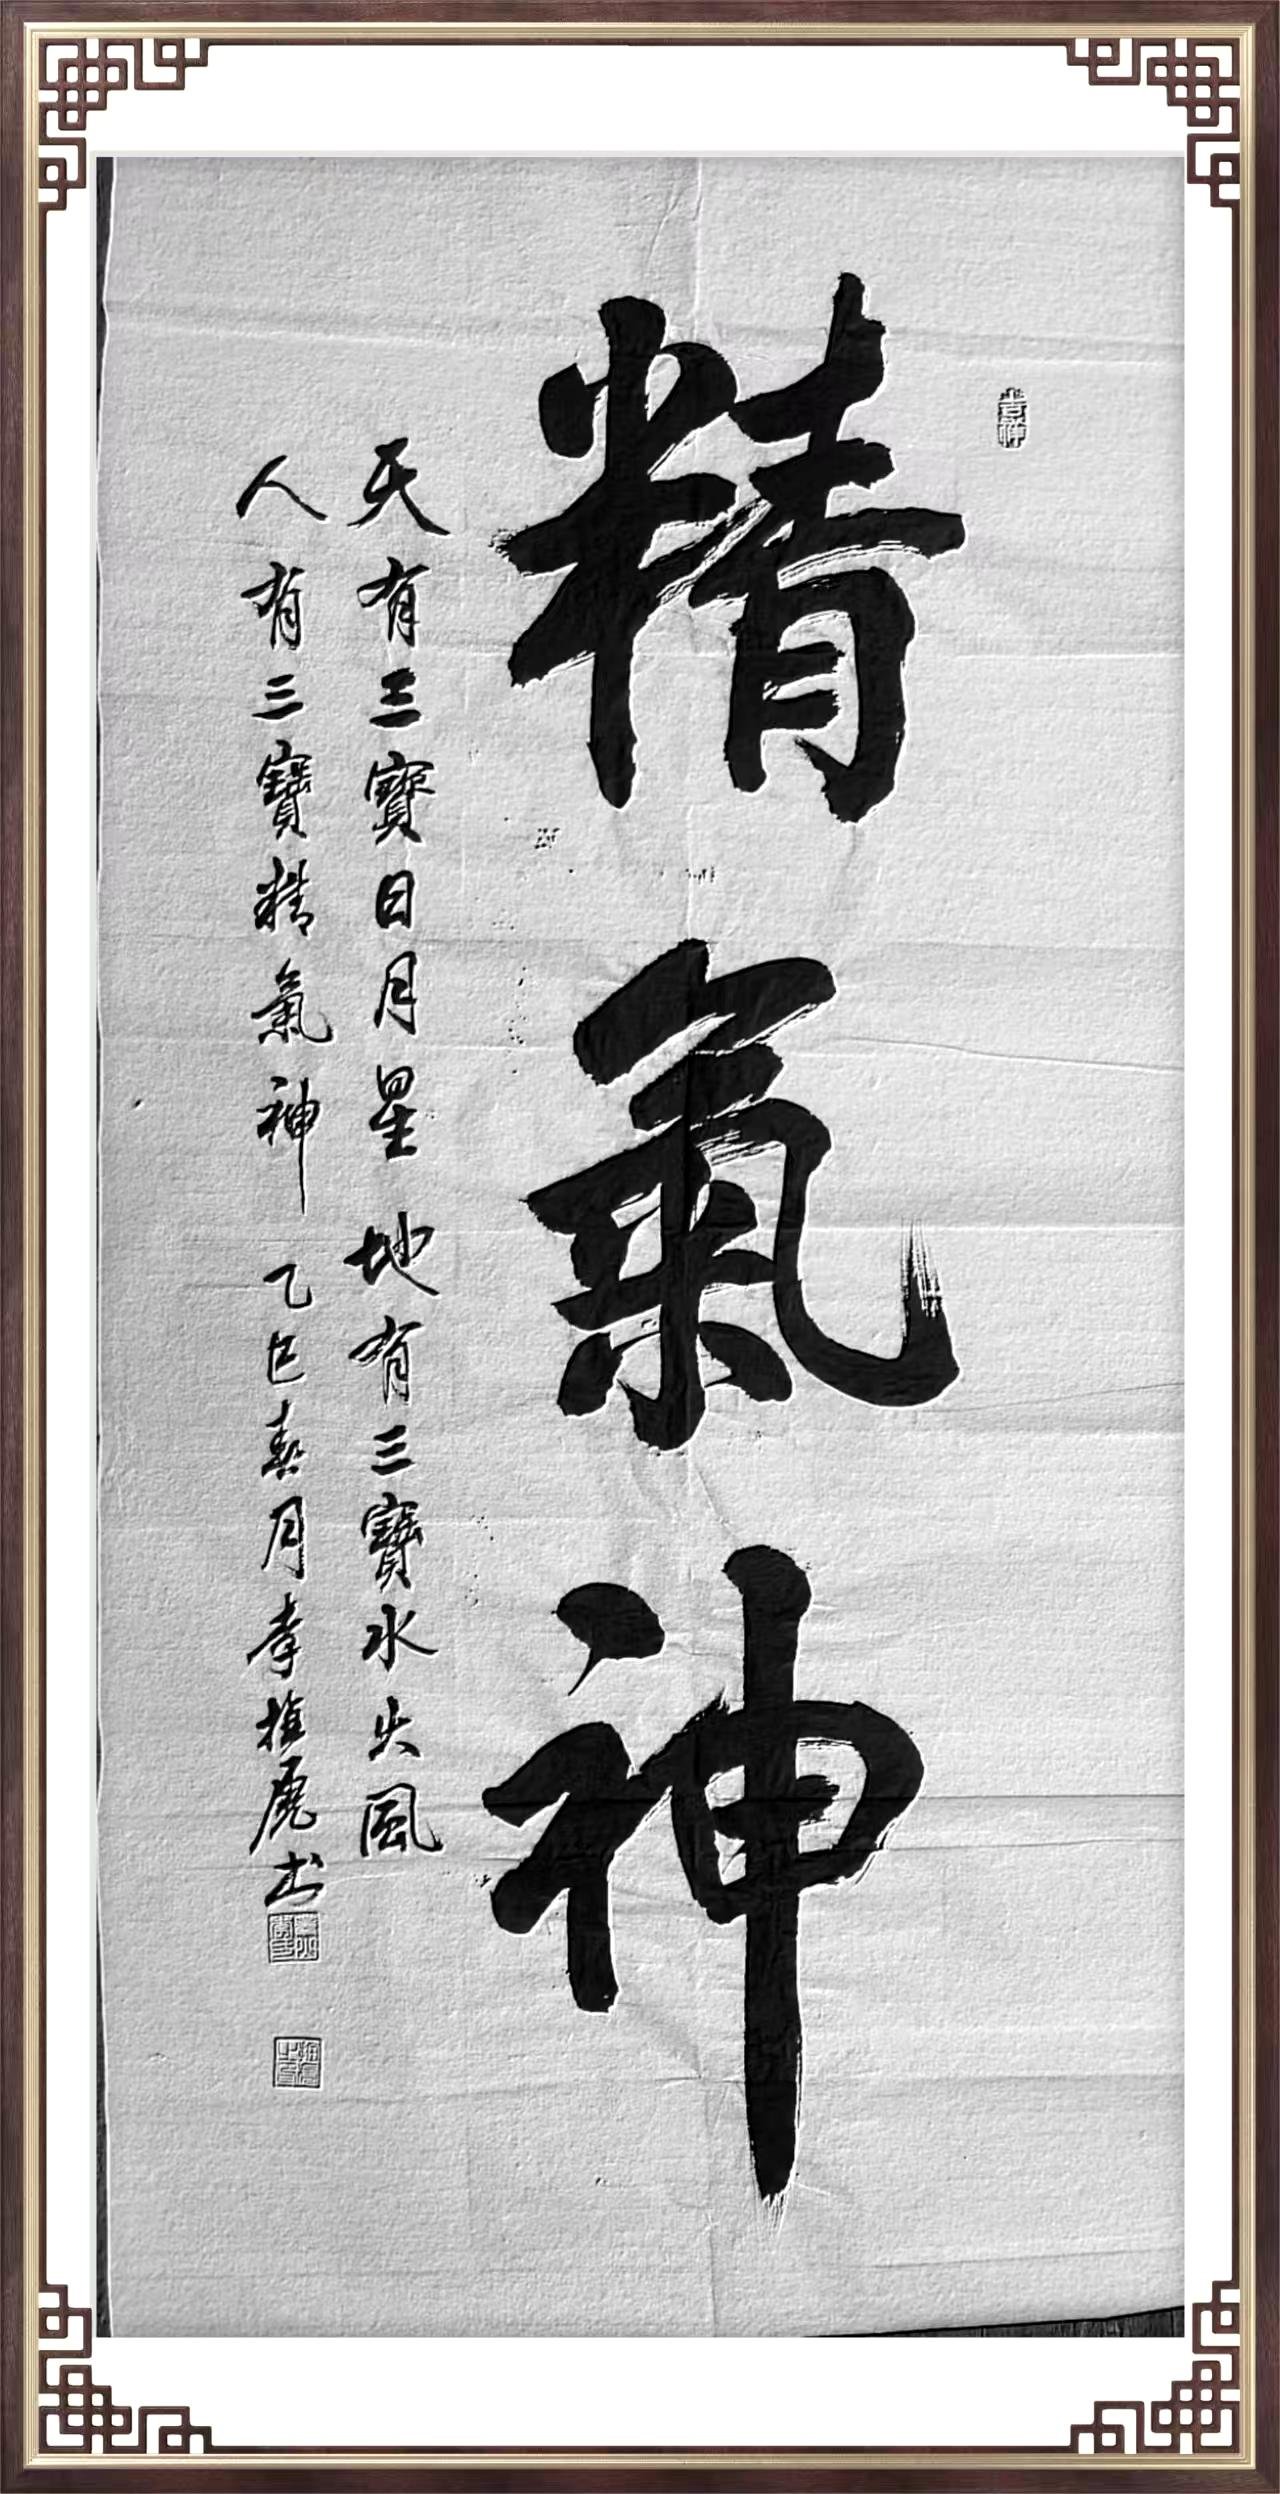 精氣神
天有三寶日月星 地有三寶水火風
人有三寶精氣神 乙巳春月李推鹿书